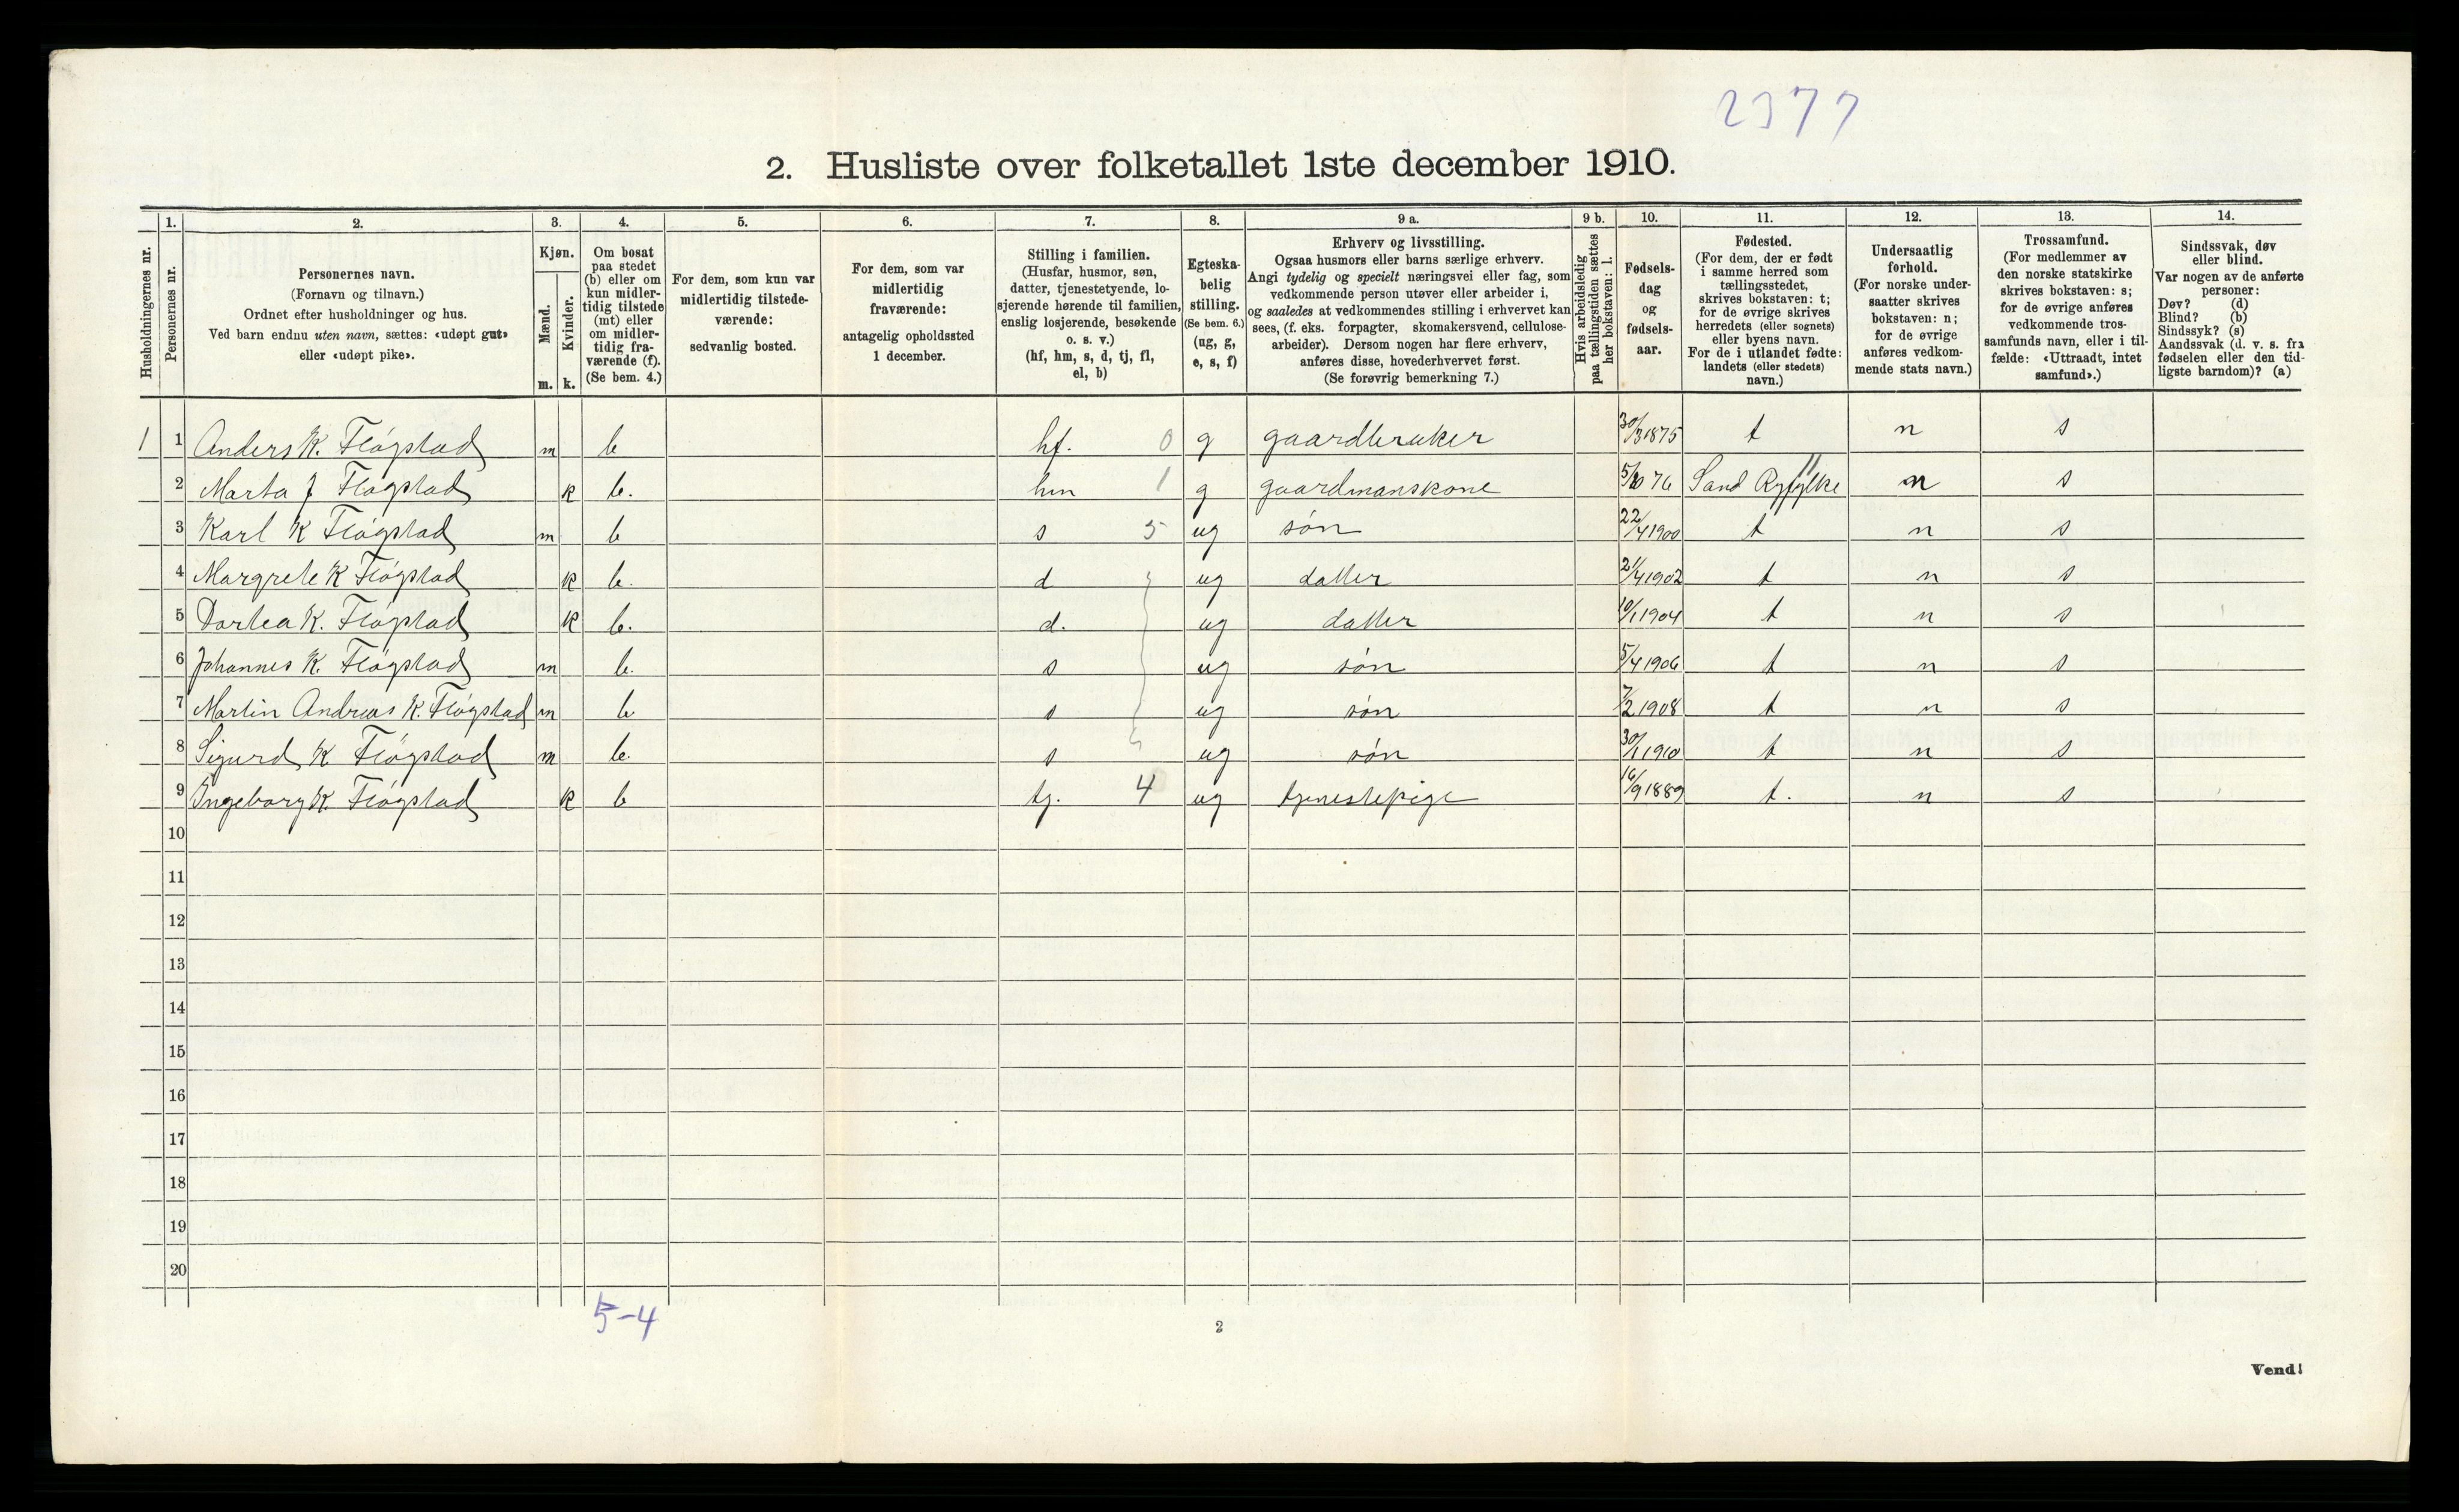 2377
2. Husliste over folketallet 1ste december 1910.
Husholdningernes nr.
1.
Personernes nr.
2.
Personernes navn.
(Fornavn og tilnavn.)
Ordnet efter husholdninger og hus.
Ved barn endnu uten navn, sættes: «udøpt gut»
eller «udøpt pike».
3.
Kjøn.
Mænd.
Kvinder.
m. k.
4.
Om bosat
paa stedet
(b) eller om
kun midler-
tidig tilstede
(mt) eller
om midler-
tidig fra-
værende (f).
(Se bem. 4.)
5.
For dem, som kun var
midlertidig tilstede-
værende:
sedvanlig bosted.
6.
For dem, som var
midlertidig
fraværende:
antagelig opholdssted
1 december.
7.
Stilling i familien.
(Husfar, husmor, søn,
datter, tjenestetyende, lo-
sjerende hørende til familien,
enslig losjerende, besøkende
o. s. v.)
(hf, hm, s, d, tj, fl,
el, b)
8.
Egteska-
belig
stilling.
(Se bem. 6.)
(ug, g,
e, s, f)
9 a.
Erhverv og livsstilling.
Ogsaa husmors eller barns særlige erhverv.
Angi tydelig og specielt næringsvei eller fag, som
vedkommende person utøver eller arbeider i,
og saaledes at vedkommendes stilling i erhvervet kan
sees, (f. eks. forpagter, skomakersvend, cellulose-
arbeider). Dersom nogen har flere erhverv,
anføres disse, hovederhvervet først.
(Se forøvrig bemerkning 7.)
9 b.
Hvis arbeidsledig
paa tællingstiden sættes
her bokstaven: l.
10.
Fødsels-
dag
og
fødsels-
aar.
11.
Fødested.
(For dem, der er født
i samme herred som
tællingsstedet,
skrives bokstaven: t;
for de øvrige skrives
herredets (eller sognets)
eller byens navn.
For de i utlandet fødte:
landets (eller stedets)
navn.)
12.
Undersaatlig
forhold.
(For norske under-
saatter skrives
bokstaven: n;
for de øvrige
anføres vedkom-
mende stats navn.)
13.
Trossamfund.
(For medlemmer av
den norske statskirke
skrives bokstaven: s;
for de øvrige anføres
vedkommende tros-
samfunds navn, eller i til-
fælde: «Uttraadt, intet
samfund».)
14.
Sindssvak, døv
eller blind.
Var nogen av de anførte
personer:
Døv? (d)
Blind? (b)
Sindssyk? (s)
Aandssvak (d. v. s. fra
fødselen eller den tid-
ligste barndom)? (a)
1 1 Anders K. Fløgstad m b hf. 0 g gaardbruker 30/3 1875 t n s
2 Marta J Fløgstad k b. hm 1 g gaardmanskone 76 Sand Ryfylke n s
3 Karl K Fløgstad m b s 5 ug søn 22/4 1900 t n s
4 Margrete K Fløgstad k b. d ug datter 21/4 1902 t n s
5 Dortea K. Fløgstad k b. d. ug datter 10/1 1904 t n s
6 Johannes K. Fløgstad m b. s ug søn 5/4 1906 t n s
7 Martin Andreas K. Fløgstad m b s ug søn 7/2 1908 t n s
8 Sigurd K Fløgstad m b. s ug søn 30/1 1910 t n s
9 Ingeborg K. Fløgstad k b tj. 4 ug tjenestepige 16/9 1889 t. n s
10
11
12
13
14
15
16
17
18
19
20
5-4
2
Vend!